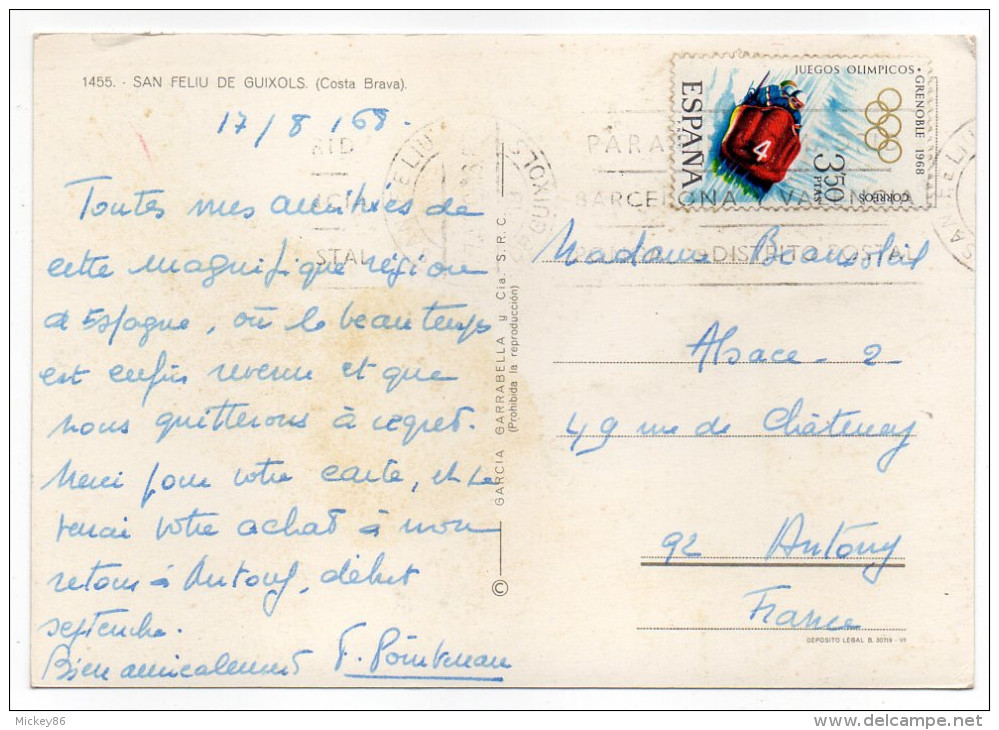 1455. - SAN FELIU DE GUIXOLS. (Costa Brava).
17/8/68.
Toutes mes amitiés de
cette magnifique région
d'Espagne, où le beau temps
est enfin revenu et que
nous quitterons à regret.
Merci pour votre carte, et
votre achat à mon
retour à Antony, début
septembre.
Bien amicalement
GARCIA GARRABELLA y Cia. S.R.C.
(Prohibida la reproducción)
©
JUEGOS OLIMPICOS • GRENOBLE 1968
ESPAÑA
4
3'50 PTAS
CORREOS
PARA
BARCELONA Y VALENCIA
DISTRITO POSTAL
SAN FELIU
GUIXOLS
Madame
Alsace - 2
49 rue de Châtenay
92 Antony
France
DEPOSITO LEGAL B. 30719 - VI
Mickey86
delcampe.net